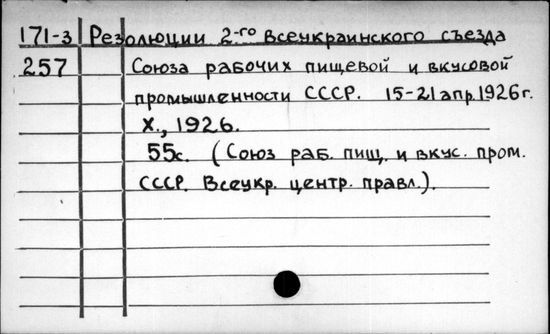 171-3 Резолюции 2-го всеукраинского съезда
257 Союза рабочих пищевой и вкусовой
промышленности СССР. 15-21 апр. 1926г.
Х., 1926.
55с. (Союз раб. пищ. и вкус. пром.
СССР. Всеукр. центр. правл.).